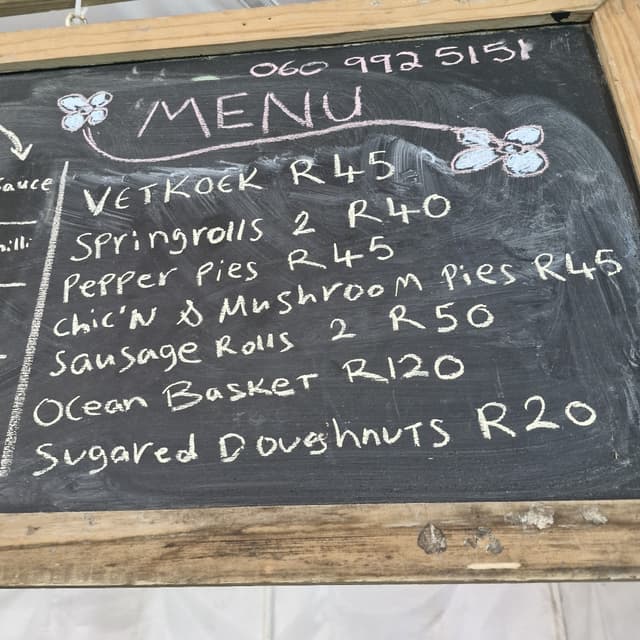 060 992 5151
MENU
sauce
hilli
VETKOEK R45
Springrolls 2 R40
Pepper Pies R45
Chic'N & MushrooM Pies R45
Sausage Rolls 2 R50
Ocean BaskeT R120
Sugared DoughnuTs R20